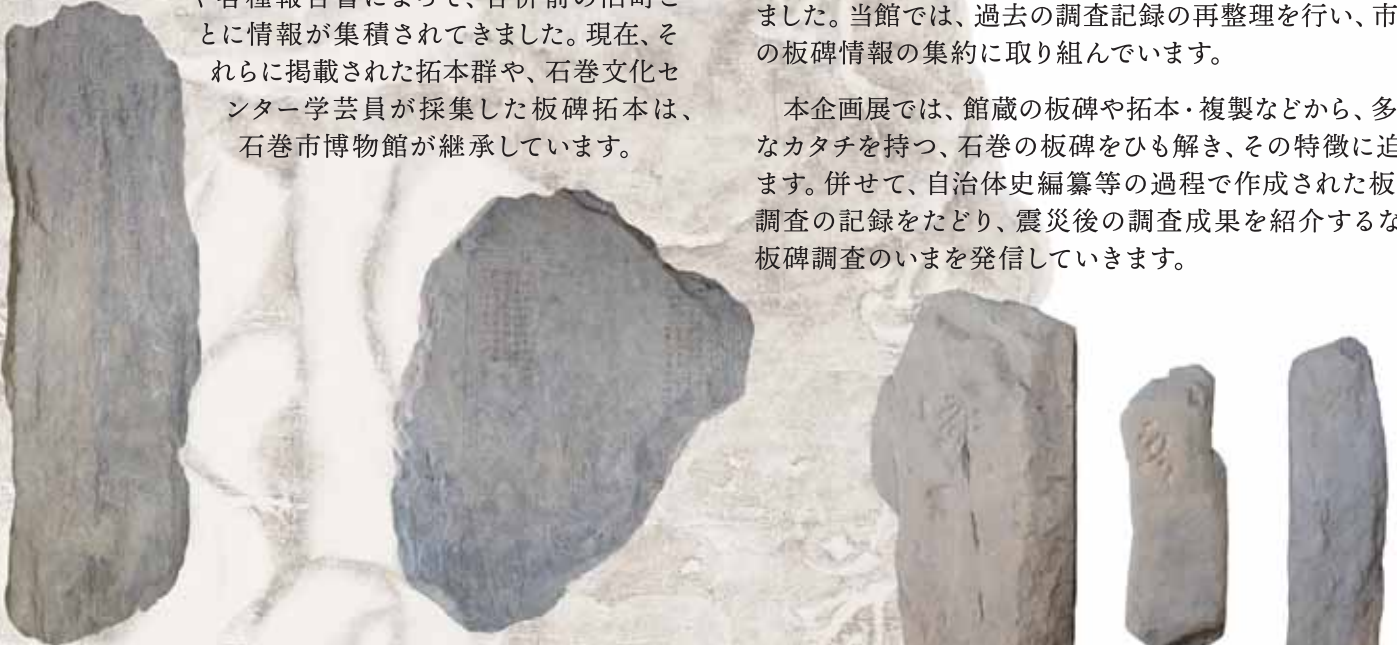 や各種報告書によって、合併前の旧町ご
とに情報が集積されてきました。現在、そ
れらに掲載された拓本群や、石巻文化セ
ンター学芸員が採集した板碑拓本は、
石巻市博物館が継承しています。
ました。当館では、過去の調査記録の再整理を行い、市
の板碑情報の集約に取り組んでいます。
本企画展では、館蔵の板碑や拓本・複製などから、多
なカタチを持つ、石巻の板碑をひも解き、その特徴に迫
ます。併せて、自治体史編纂等の過程で作成された板
調査の記録をたどり、震災後の調査成果を紹介するな
板碑調査のいまを発信していきます。